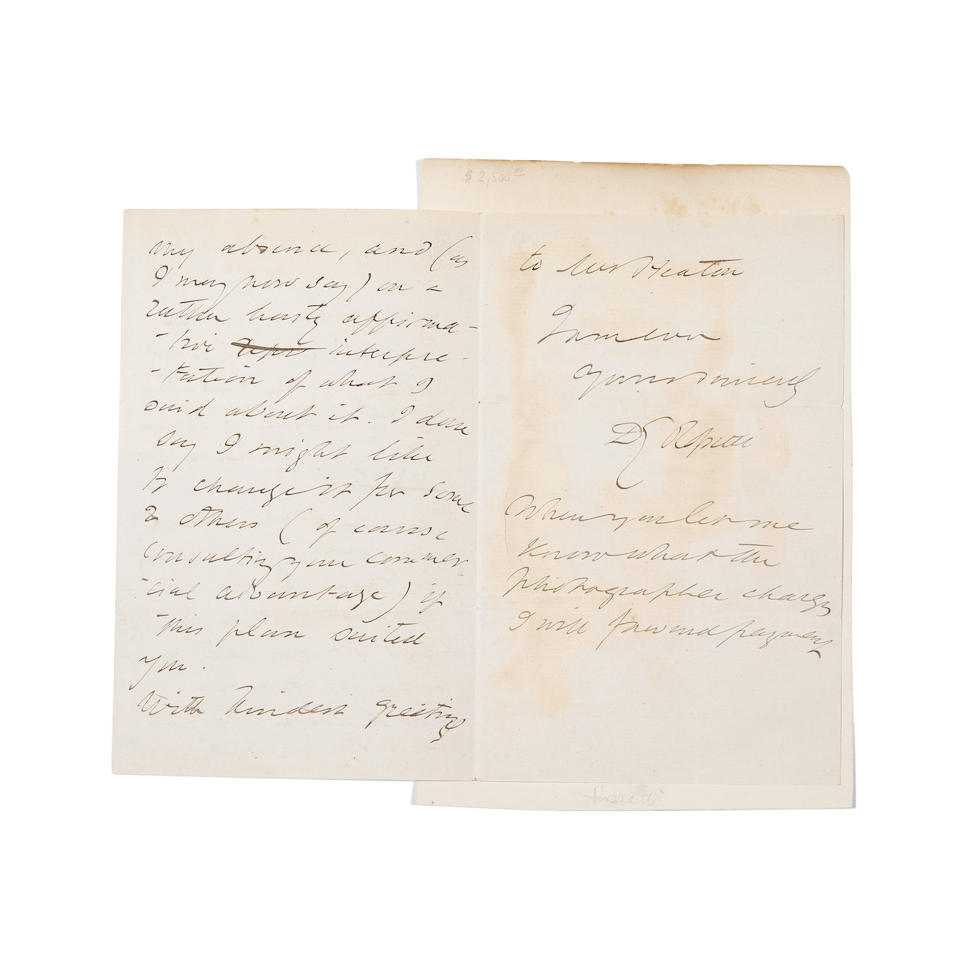 my absence, and (as
I may now say) on a
rather hasty affirma-
-tive interpre-
-tation of what I
said about it. I dare
say I might like
to change it for some
2 others (of course
consulting your commer
-cial advantage) if
this plan suited
you.
With kindest greeting
$ 2,500
to Mrs Heaton
I am ever
Yours sincerely
D G Rossetti
When you let me
know what the
photographer charges
I will forward payment
Rossetti